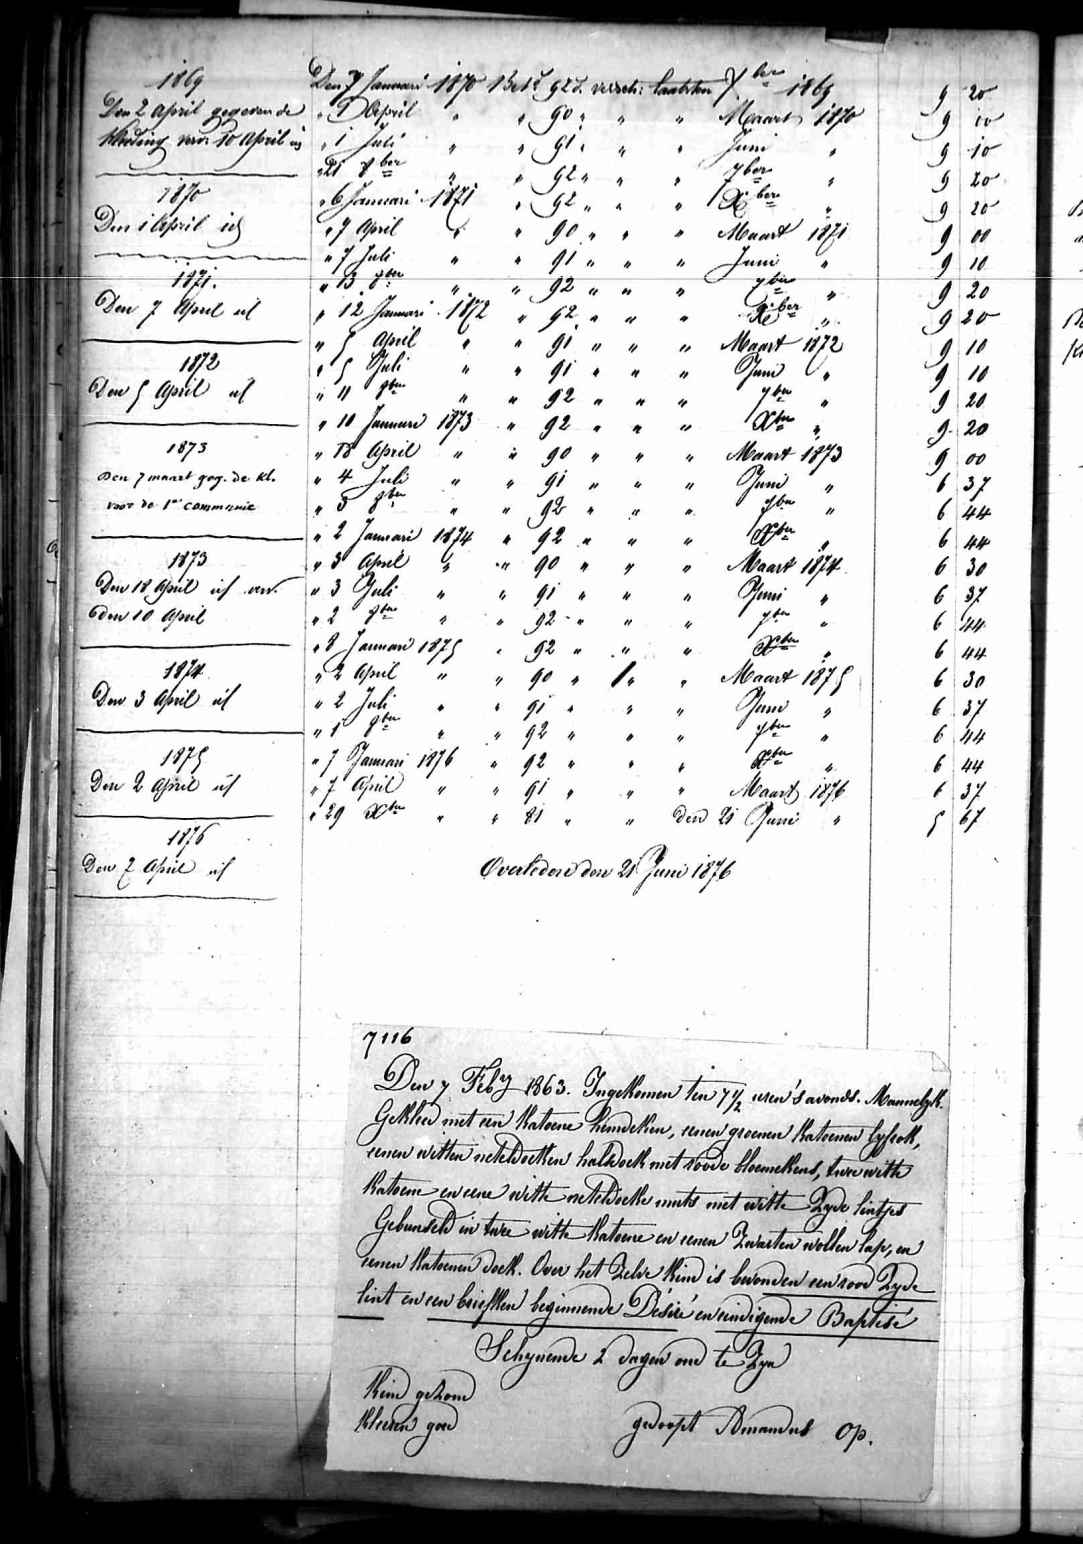 1869
Den 2 April gegeven de
kleeding voor 10 April
1870
Den 1 April id
1871.
Den 7 April id
1872
Den 5 April id
1873
Den 7 maart geg. de kl.
voor de 1e communie
1873
Den 18 April id voor
den 10 April
1874
Den 3 April id
1875
Den 2 April id
1876
Den 7 April id
Den 7 Januari 1870 Bet. 92 d. versch: laatsten Xber 1869 9 20
" April " " 90 " " " Maart 1870 9 00
" 1 Juli " " 91 " " " Juni " 9 10
" 21 8ber " " 92 " " " 7ber " 9 20
" 6 Januari 1871 " 92 " " " Xber " 9 20
" 7 April " " 90 " " " Maart 1871 9 00
" 7 Juli " " 91 " " " Juni " 9 10
" 13 8ber " " 92 " " " 7ber " 9 20
" 12 Januari 1872 " 92 " " " Xber " 9 20
" 5 April " " 91 " " " Maart 1872 9 10
" 5 Juli " " 91 " " " Juni " 9 10
" 11 8ber " " 92 " " " 7ber " 9 20
" 10 Januari 1873 " 92 " " " Xber " 9 20
" 18 April " " 90 " " " Maart 1873 9 00
" 4 Juli " " 91 " " " Juni " 6 37
" 3 8ber " " 92 " " " 7ber " 6 44
" 2 Januari 1874 " 92 " " " Xber " 6 44
" 3 April " " 90 " " " Maart 1874 6 30
" 3 Juli " " 91 " " " Juni " 6 37
" 2 8ber " " 92 " " " 7ber " 6 44
" 8 Januari 1875 " 92 " " " Xber " 6 44
" 2 April " " 90 " " " Maart 1875 6 30
" 2 Juli " " 91 " " " Juni " 6 37
" 1 8ber " " 92 " " " 7ber " 6 44
" 7 Januari 1876 " 92 " " " Xber " 6 44
" 7 April " " 91 " " " Maart 1876 6 37
" 29 Xber " " 81 " " den 21 Juni " 5 67
Overleden den 21 Juni 1876
7116
Den 7 Feby 1863. Ingekomen ten 7 1/2 uren 's avonds. Mannelyk.
Gekleed met een katoene hemdeken, eenen groenen katoenen lyfrok,
eenen witten neteldoeken halsdoek met roode bloemekens, twee witte
katoene en eene witte neteldoeke muts met witte Zyde lintjes
Gebunseld in twee witte katoene en eenen Zwarten wollen lap, en
eenen katoenen doek. Over het Zelve kind is bevonden een rood Zyde
lint en een briefken beginnende Désiré en eindigende Baptisé
Schynende 2 dagen oud te Zyn
Kind gezond
Kleeren goed
gedoopt Amandus Op.